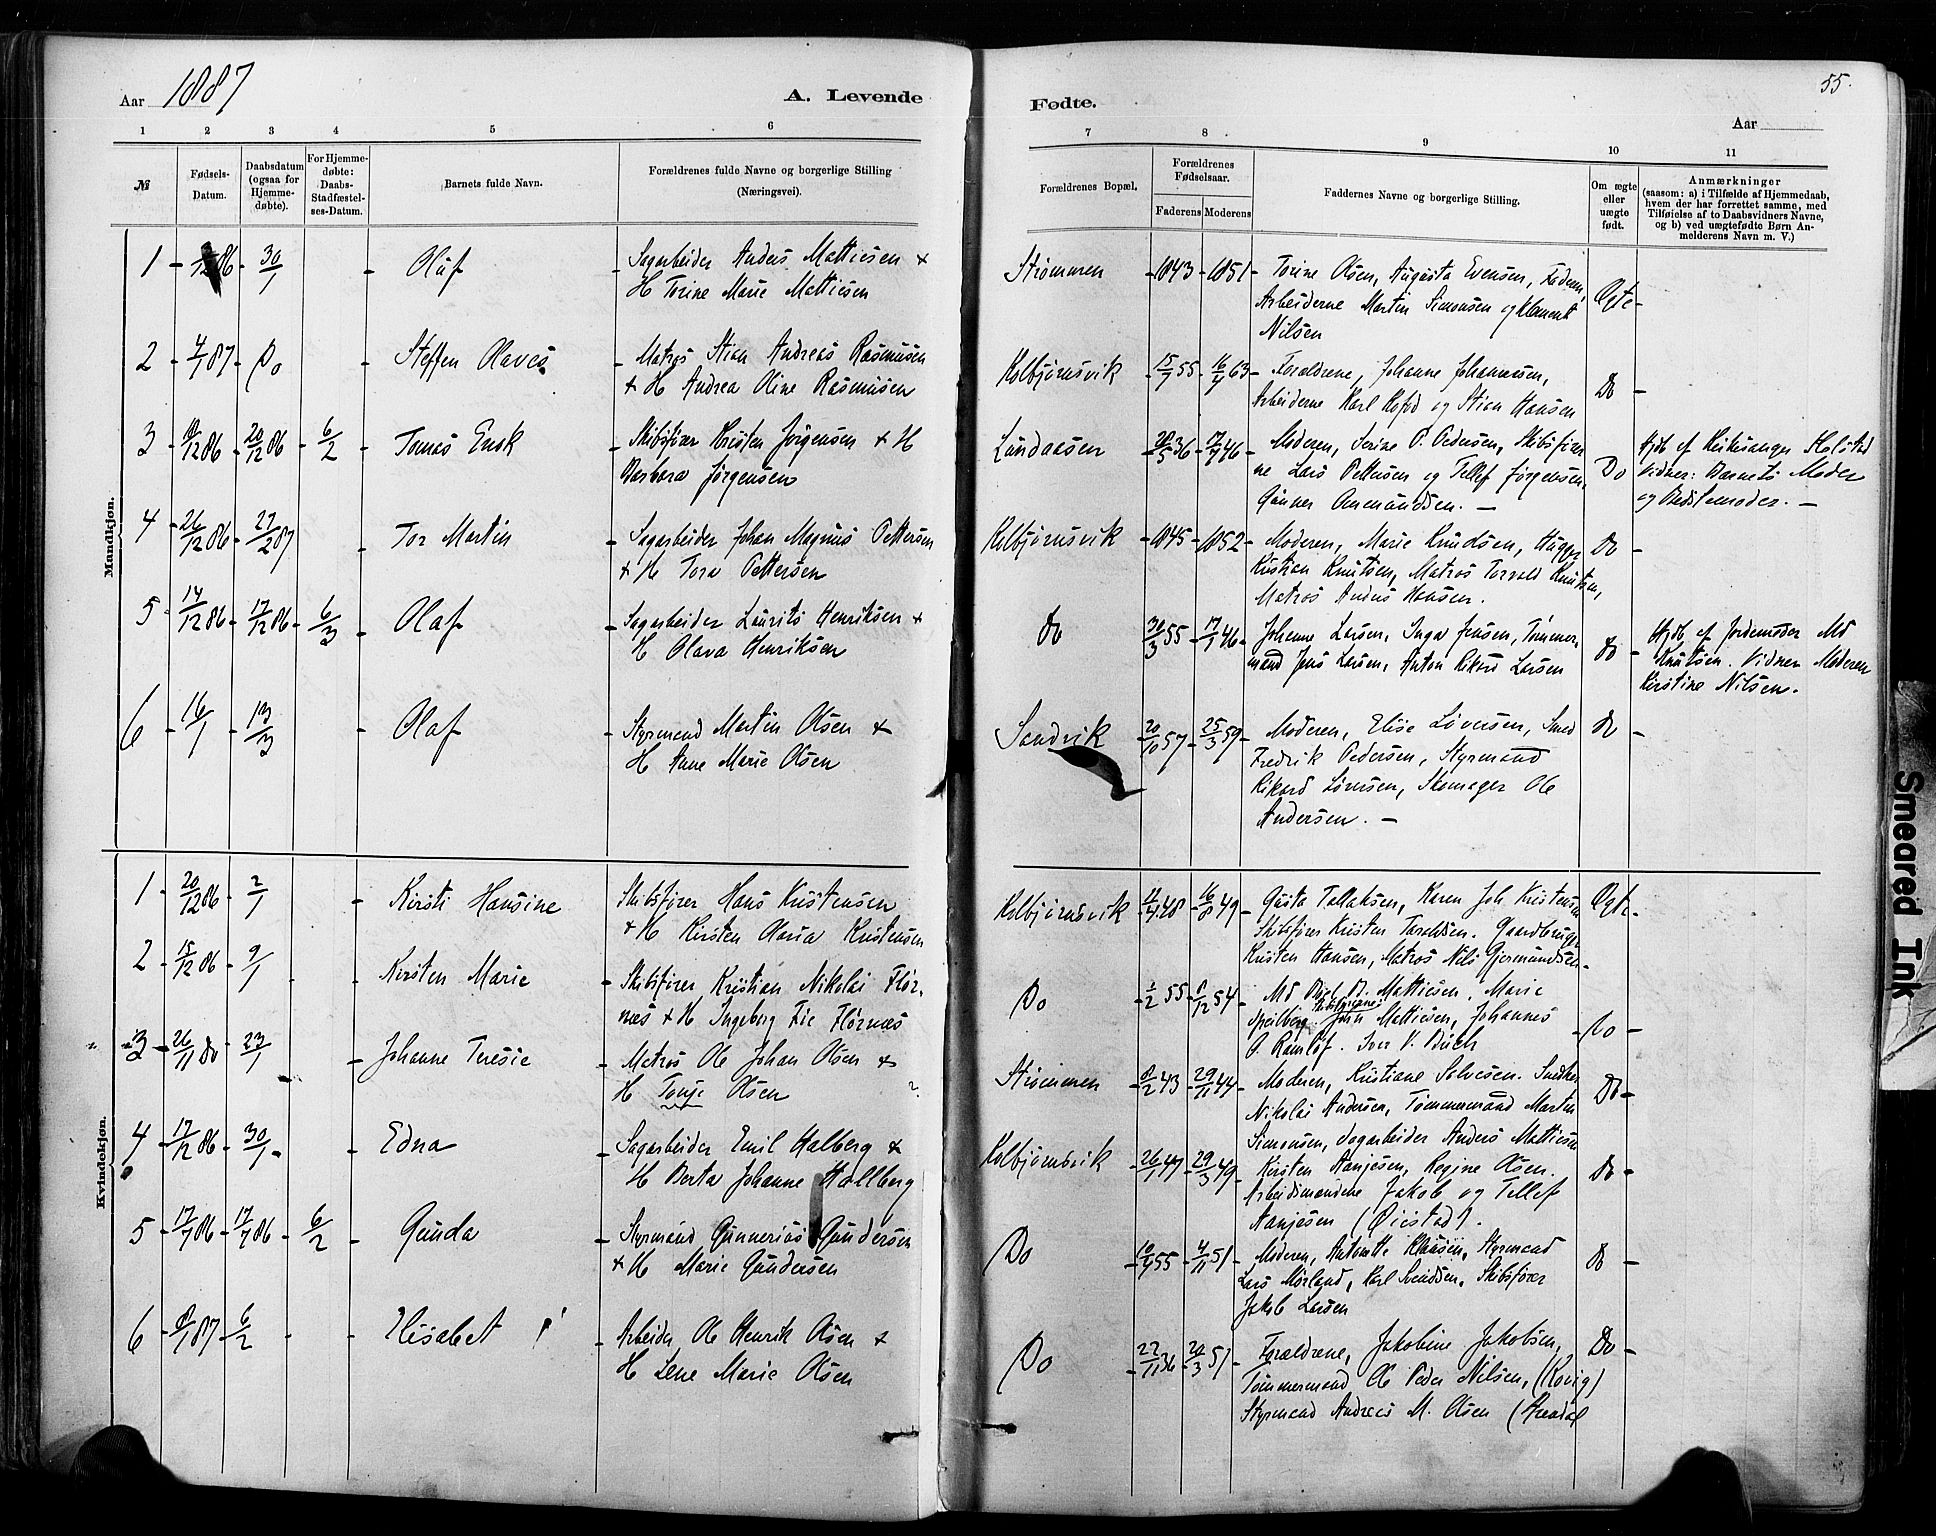 Aar 1887
A. Levende
1 2 3 4 5 6
№
Fødsels-Datum.
Daabsdatum (ogsaa for Hjemme-døbte).
For Hjemme-døbte: Daabs-Stadfæstel-ses-Datum.
Barnets fulde Navn.
Forældrenes fulde Navne og borgerlige Stilling (Næringsvei).
Mandkjøn.
1 - 12 86 - 30/1 - Olaf - Sagarbeider Anders Mattiesen +
H Torine Marie Mattiesen
2 - 4/1 87 - Do - Steffen Olaves - Matros Stian Andreas Rasmusen
+ H Andrea Oline Rasmusen
3 - 18/12 86 20/12 86 - 6/2 - Tomas - Skibsfører Kristen Jørgensen + H
Barbara Jørgensen
4 - 26/12 86 - 27/2 87 - Tor Martin - Sagarbeider Johan Magnus Pettersen
+ H Tora Pettersen
5 - 14/12 86 - 17/12 86 - 6/3 - Olaf - Sagarbeider Laurits Henriksen +
H Olava Henriksen
6 - 16/1 - 13/3 - Olaf - Styrmand Martin Olsen +
H Anne Marie Olsen
Kvindekjøn.
1 - 20/12 86 - 2/1 - Kirsti Hansine - Skibsfører Hans Kristensen
+ H Kirsten Maria Kristensen
2 - 15/12 86 - 9/1 - Kirsten Marie - Skibsfører Kristian Nikolai Flør-
næs + H Ingeberg Fie Flørnæs
3 - 26/11 do - 23/1 - Johanne Teresie - Matros Ole Johan Olsen +
H Tonje Olsen ?
4 - 17/12 86 - 30/1 - Edna - Sagarbeider Emil Halberg +
H Berta Johanne Hallberg
5 - 17/7 86 - 17/7 86 - 6/2 - Gunda - Styrmand Gunnerius Gundersen
+ H Marie Gundersen
6 - 8/1 87 - 6/2 - Elisabet - Arbeider Ole Henrik Olsen +
H Lene Marie Olsen
55.
Fødte.
Aar
7 8 9 10 11
Forældrenes Bopæl.
Forældrenes Fødselsaar.
Faderens Moderens
Faddernes Navne og borgerlige Stilling.
Om ægte eller uægte født.
Anmærkninger
(saasom: a) i Tilfælde af Hjemmedaab, hvem der har forrettet samme, med Tilføielse af to Daabsvidners Navne, og b) ved uægtefødte Børn An-melderens Navn m. V.)
Strømmen - 1843 - 1851 - Torine Olsen, Augusta Evensen, Faderen,
Arbeiderne Morten Simonsen og Klement
Nilsen
Ægte -
Kolbjørnsvik - 15/7 55 - 16/4 63 - Forældrene, Johanne Johannesen,
Arbeiderne Karl Kofod og Stian Hansen
Do -
Lundaasen - 28/5 36 - 17/9 46 - Moderen, Serine P. Pedersen, Skibsfører
ne Lars Pettersen og Tellef Jørgensen,
Gunner Ommundsen. -
Do
Hjdb. af Kirkesanger Holstad
Vidner: Barnets Moder
og Bedstemoder. -
Kolbjørnsvik - 1845 - 1852 - Moderen, Marie Knudsen, Hugger
Kristian Knutsen, Matros Torvald Knutsen,
Matros Anders Hansen.
Do -
do - 31/3 55 - 17/1 46 - Johanne Larsen, Inga Jensen, Tømmer-
mand Jens Larsen, Anton Rikard Larsen
do -
Hjdb. af Jordemoder Md
Knutsen. Vidner Moderen
Kirstine Nilsen.
Sandvik - 20/10 57 - 25/3 59 - Moderen, Elise Løversen, Smed
Fredrik Pedersen, Styrmand
Rikard Løversen, Skomager Ole
Andersen. -
Do -
Kolbjørnsvik - 12/4 48 - 16/8 49 - Gusta Tallaksen, Karen Joh Kristensen
Skibsfører Kristen Taraldsen. Gaardbruger
Kristen Hansen, Matros Nils Gjermundsen -
Ægte -
Do - 1/2 55 - 8/12 54 - Md B. Mattiesen. Marie
Speilberg. John Mattiesen, Johannes
P. Ramløf. Iver V. Buch
Do -
Strømmen - 8/2 43 - 29/11 44 - Moderen, Kristiane Solvesen. Snedker
Nikolai Andersen, Tømmermand Morten
Simonsen, Sagarbeider Anders Mattiesen
Do -
Kolbjørnsvik - 26/1 47 - 29/3 49 - Kirsten Aanjesen, Regine Olsen.
Arbeidsmændene Jakob og Tellef
Aanjesen (Øiestad).
Do -
Do - 10/4 55 - 4/11 51 - Moderen, Antonette Klausen, Styrmand
Lars Mørland, Karl Svendsen, Skibsfører
Jakob Larsen
Do -
Do - 22/11 36 - 20/3 51 - Forældrene, Jakobine Jakobsen,
Tømmermand Ole Peder Nilsen, (Revig)
Styrmand Andreas M. Olsen (Arendal
Do -
Smeared Ink